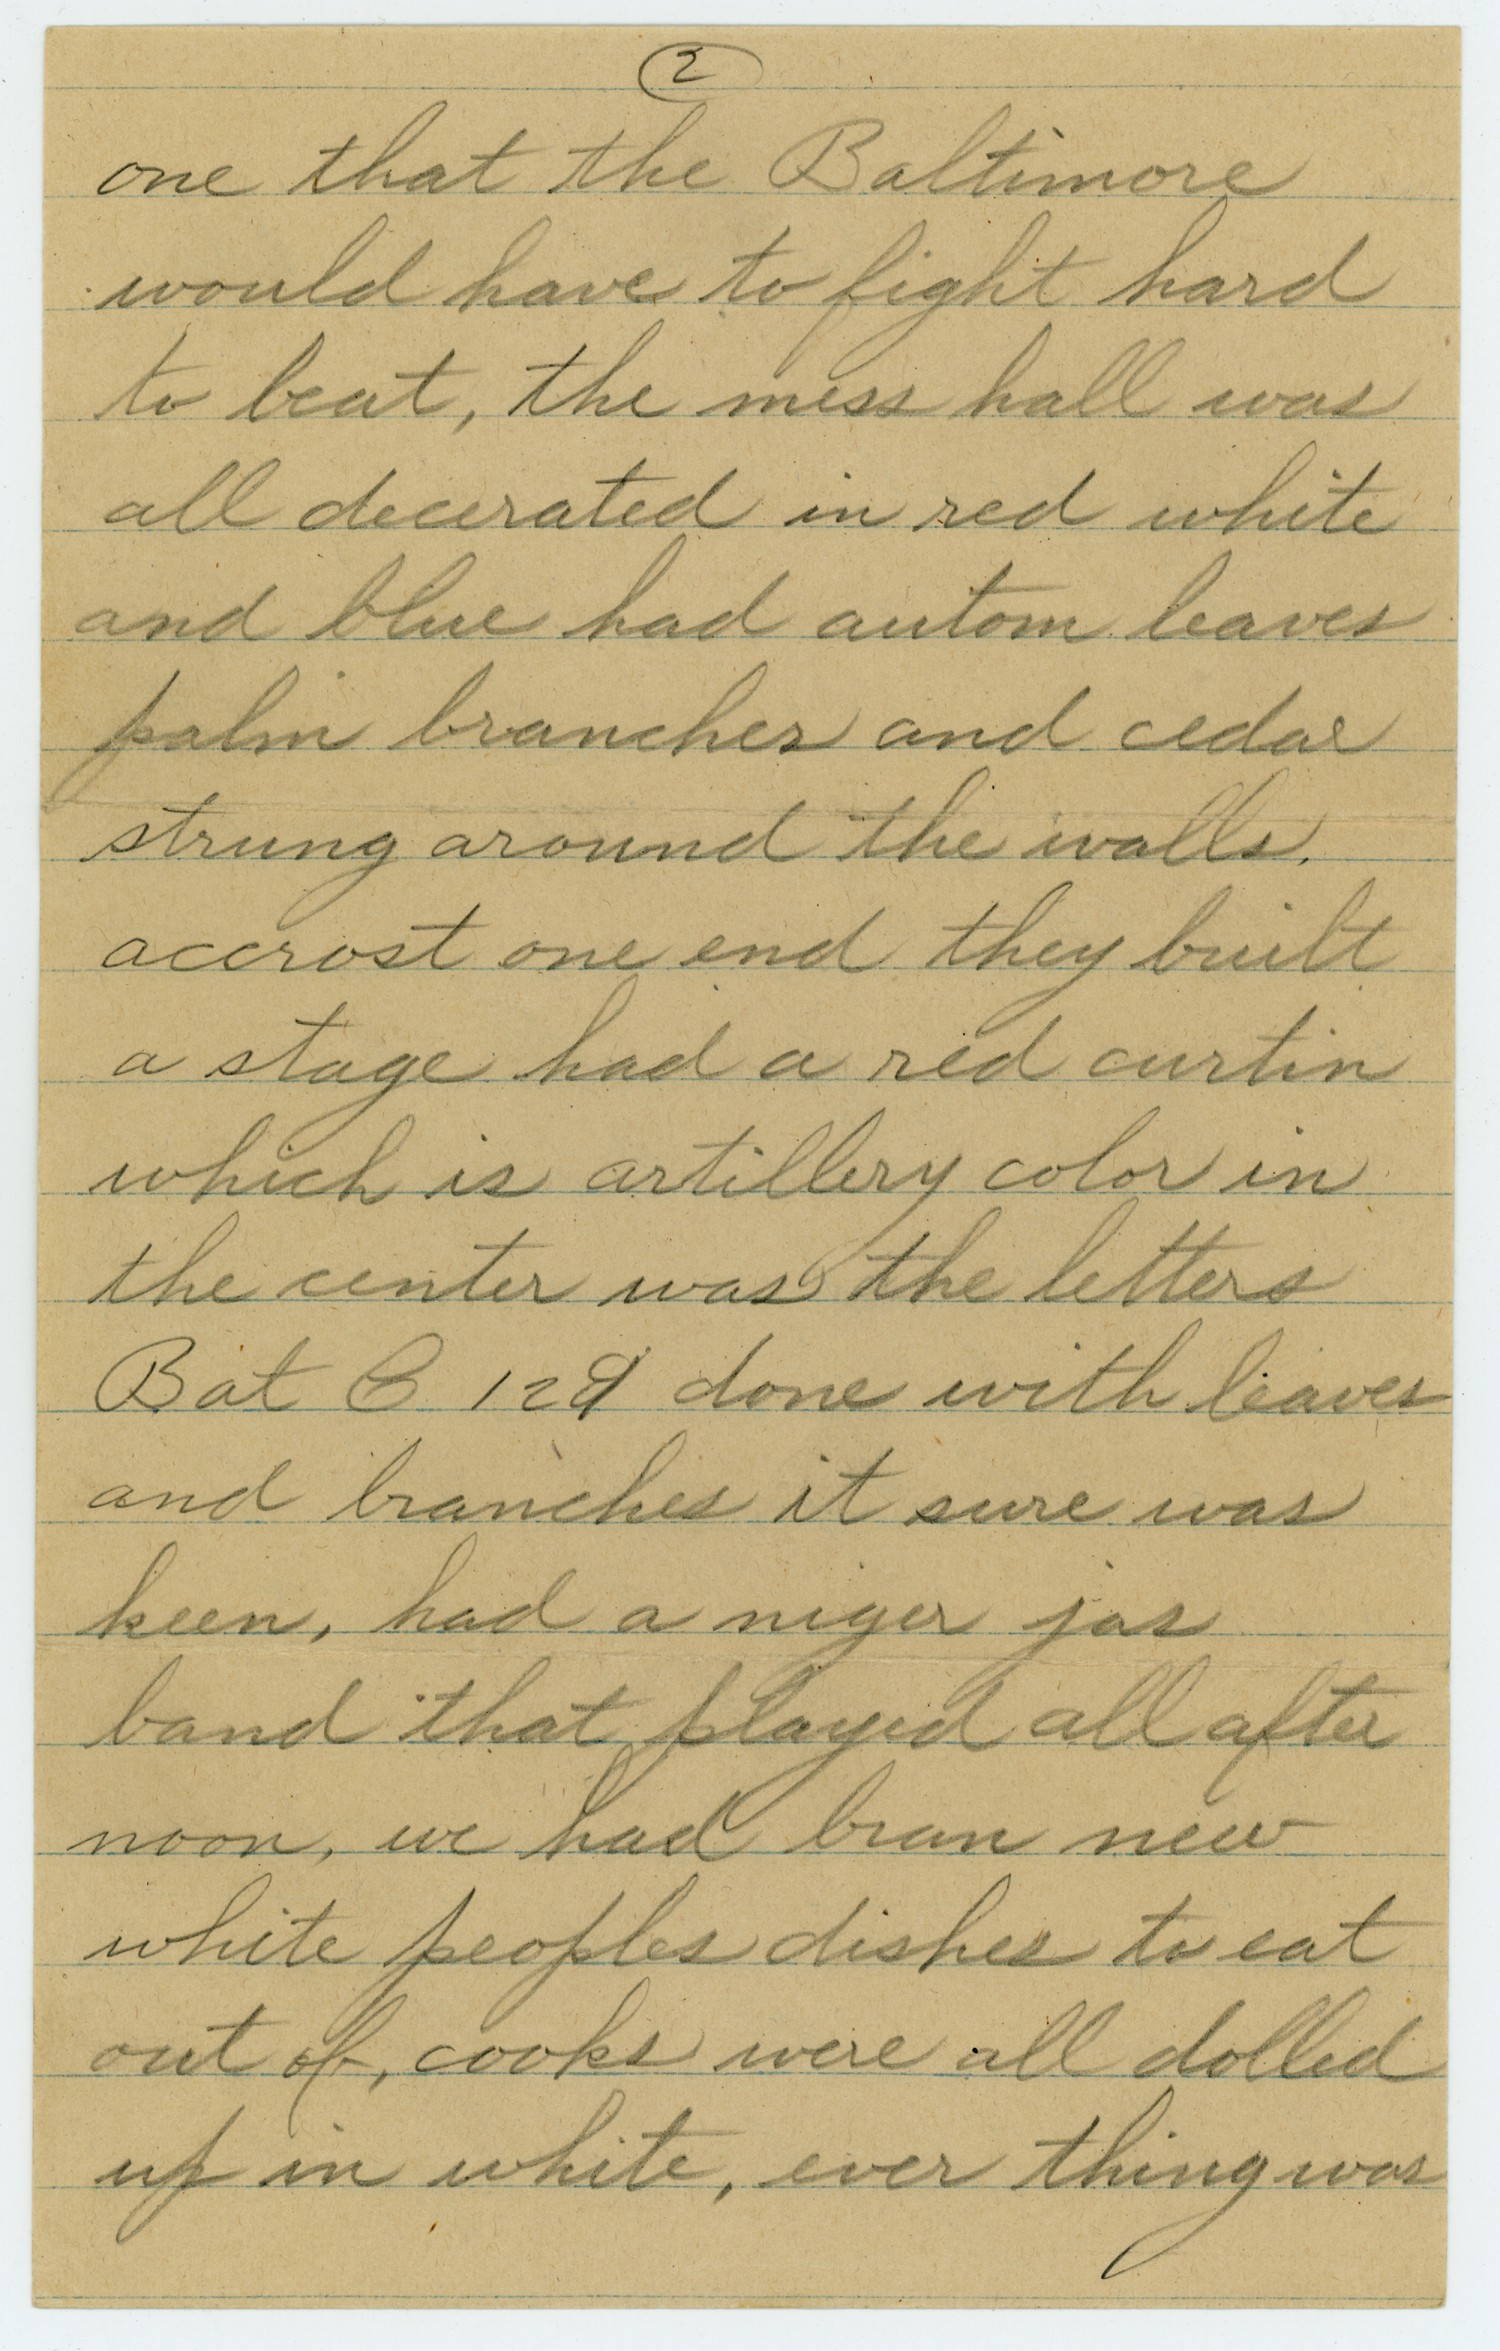 2
one that the Baltimore
would have to fight hard
to beat, the mess hall was
all decerated in red white
and blue had autom leaves
palm branches and cedar
strung around the walls.
accrost one end they built
a stage had a red curtin
which is artillery color in
the center was the letters
Bat C 129 done with leaves
and branches it sure was
keen, had a niger jas
band that played all after
noon, we had bran new
white peoples dishes to eat
out of, cooks were all dolled
up in white, ever thing was